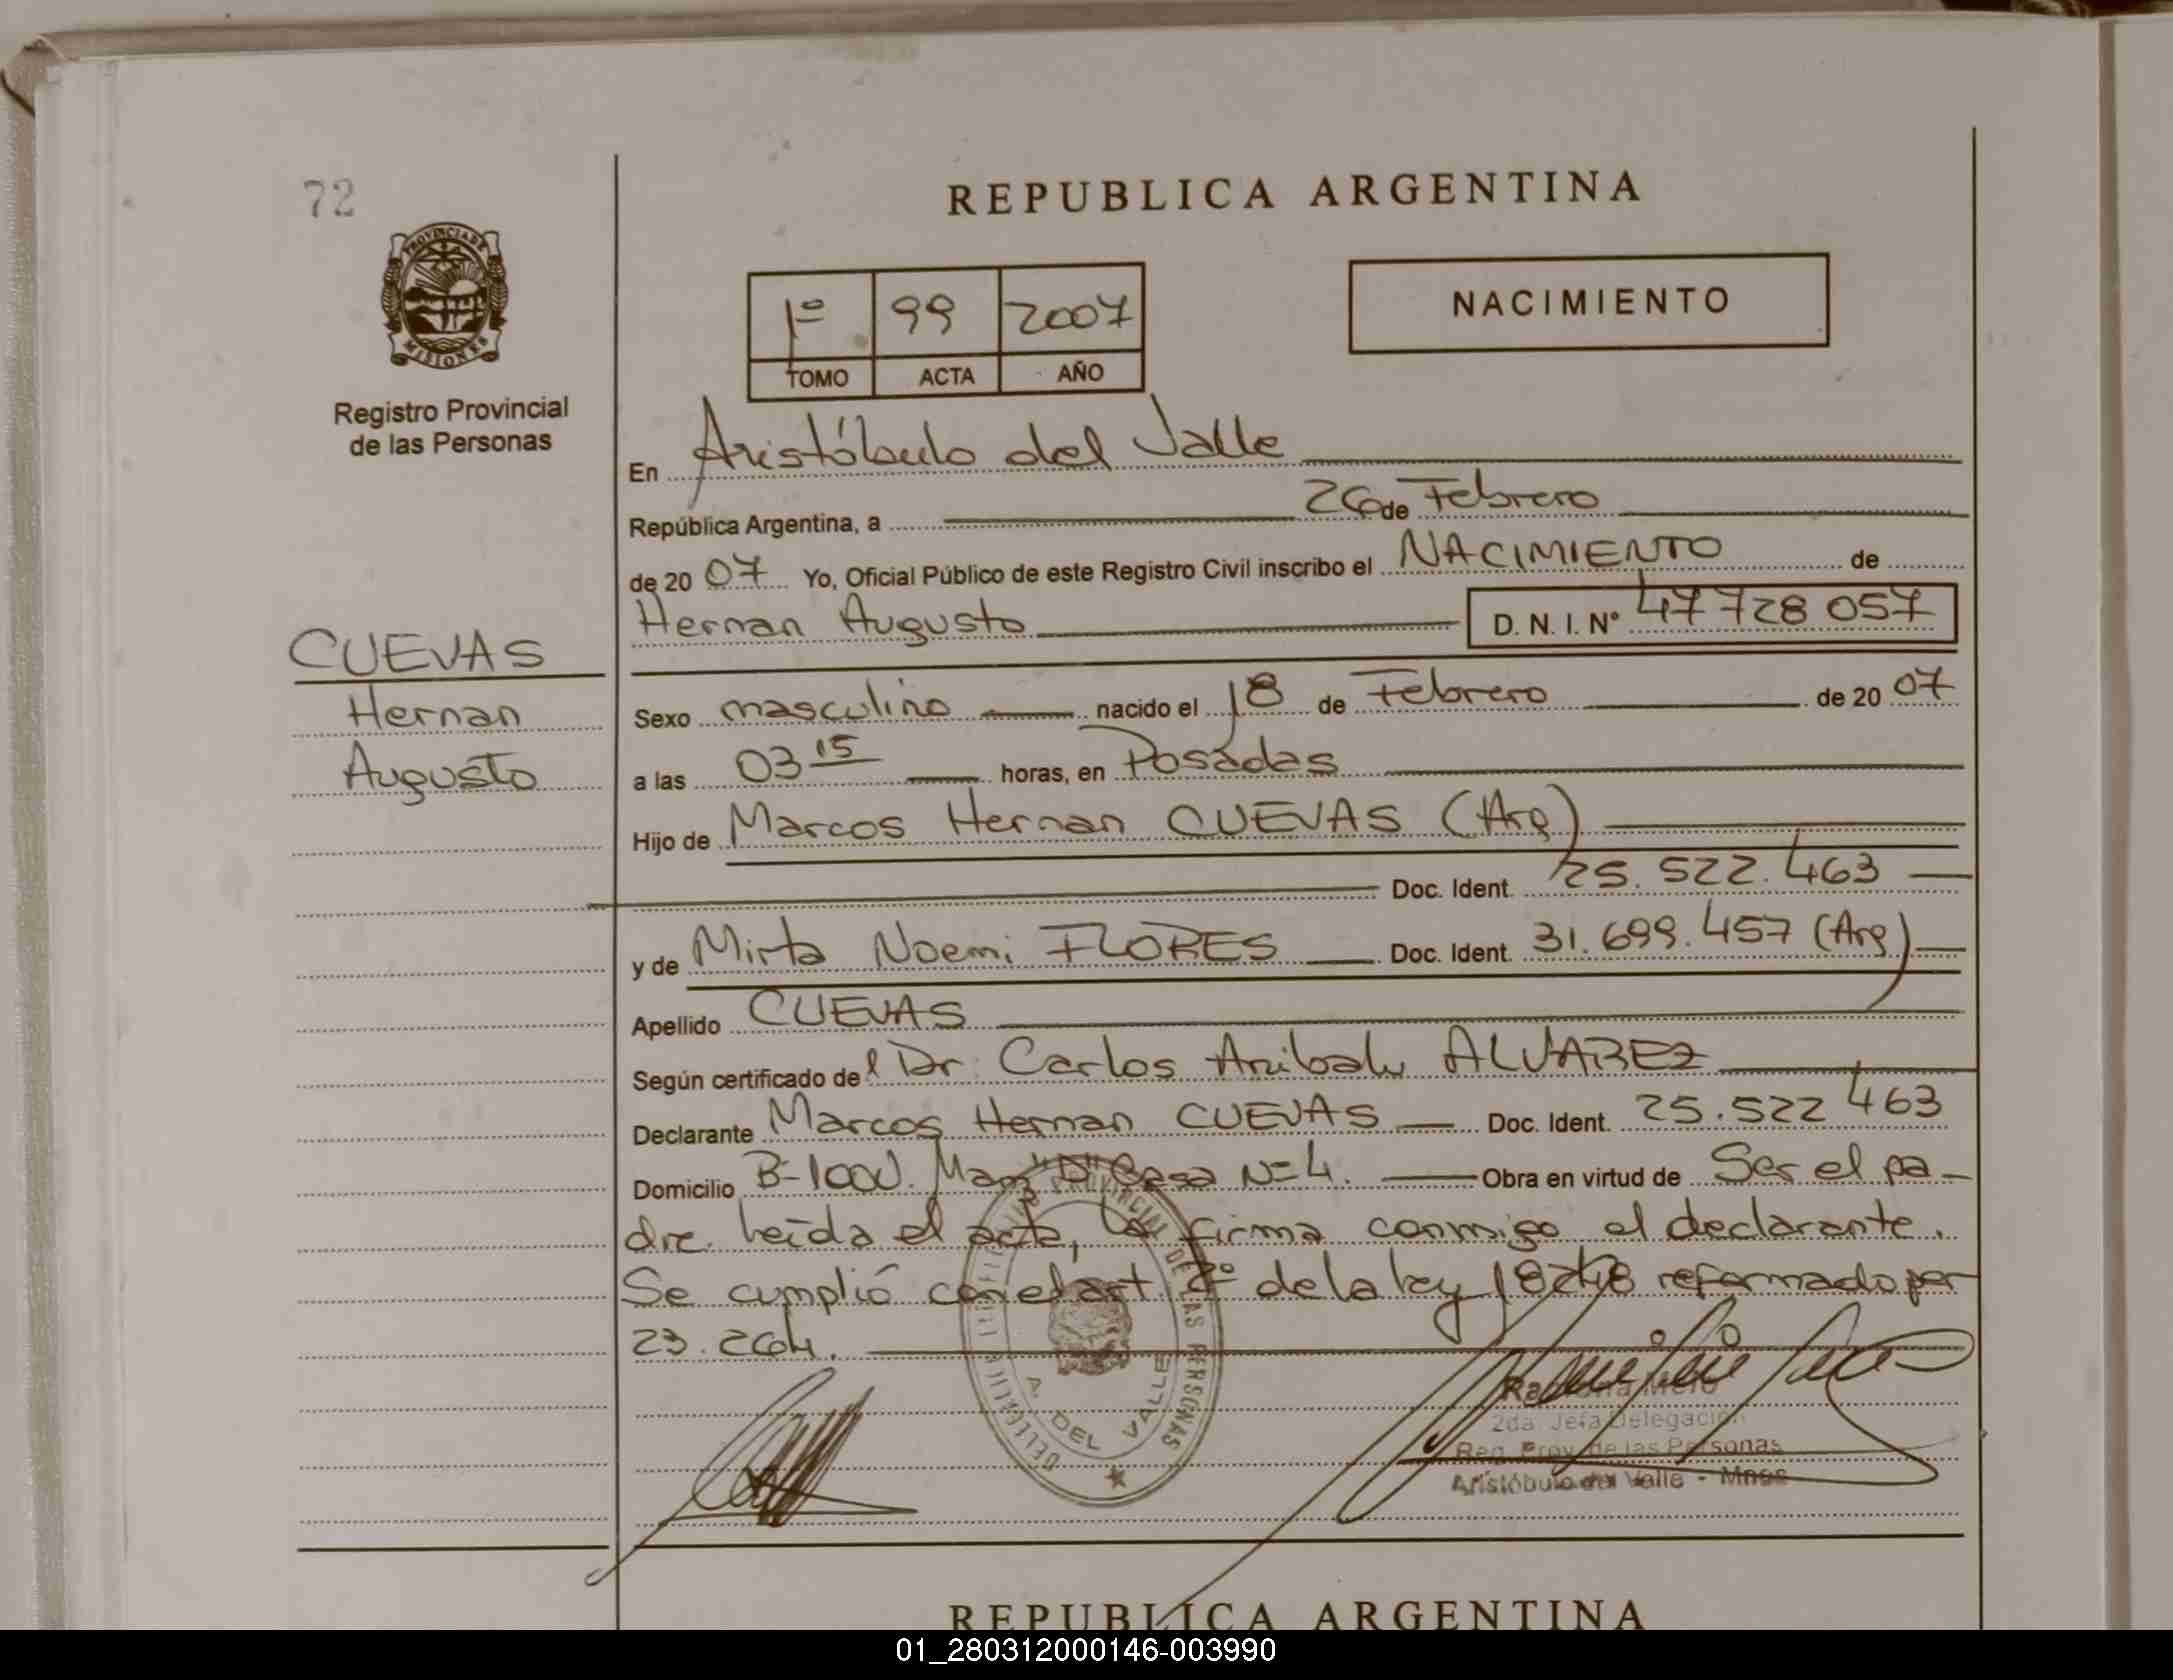 72
REPUBLICA ARGENTINA
PROVINCIA DE
MISIONES
Registro Provincial
de las Personas
1º 99 2007
TOMO ACTA AÑO
NACIMIENTO
En Aristóbulo del Valle
República Argentina, a 26 de Febrero
de 20 07 Yo, Oficial Público de este Registro Civil inscribo el NACIMIENTO de
Hernan Augusto D. N. I. Nº 47 728 057
CUEVAS
Hernan
Augusto
Sexo masculino nacido el 18 de Febrero de 20 07
a las 03 15 horas, en Posadas
Hijo de Marcos Hernan CUEVAS (Arg)
Doc. Ident. 25.522.463
y de Mirta Noemi FLORES Doc. Ident. 31.699.457 (Arg)
Apellido CUEVAS
Según certificado del Dr. Carlos Anibal ALVAREZ
Declarante Marcos Hernan CUEVAS Doc. Ident. 25.522 463
Domicilio Casa Nº 4. Obra en virtud de Ser el pa-
dre. Leída el acta, la firma conmigo el declarante.
Se cumplió con el art. 2º de la ley 18248 reformado por
23.264.
PROVINCIAL DE LAS PERSONAS
A. DEL VALLE
Ramona Melo
2da. Jefa Delegación
Reg. Prov. de las Personas
Aristóbulo del Valle - Mnes
REPUBLICA ARGENTINA
01_280312000146-003990